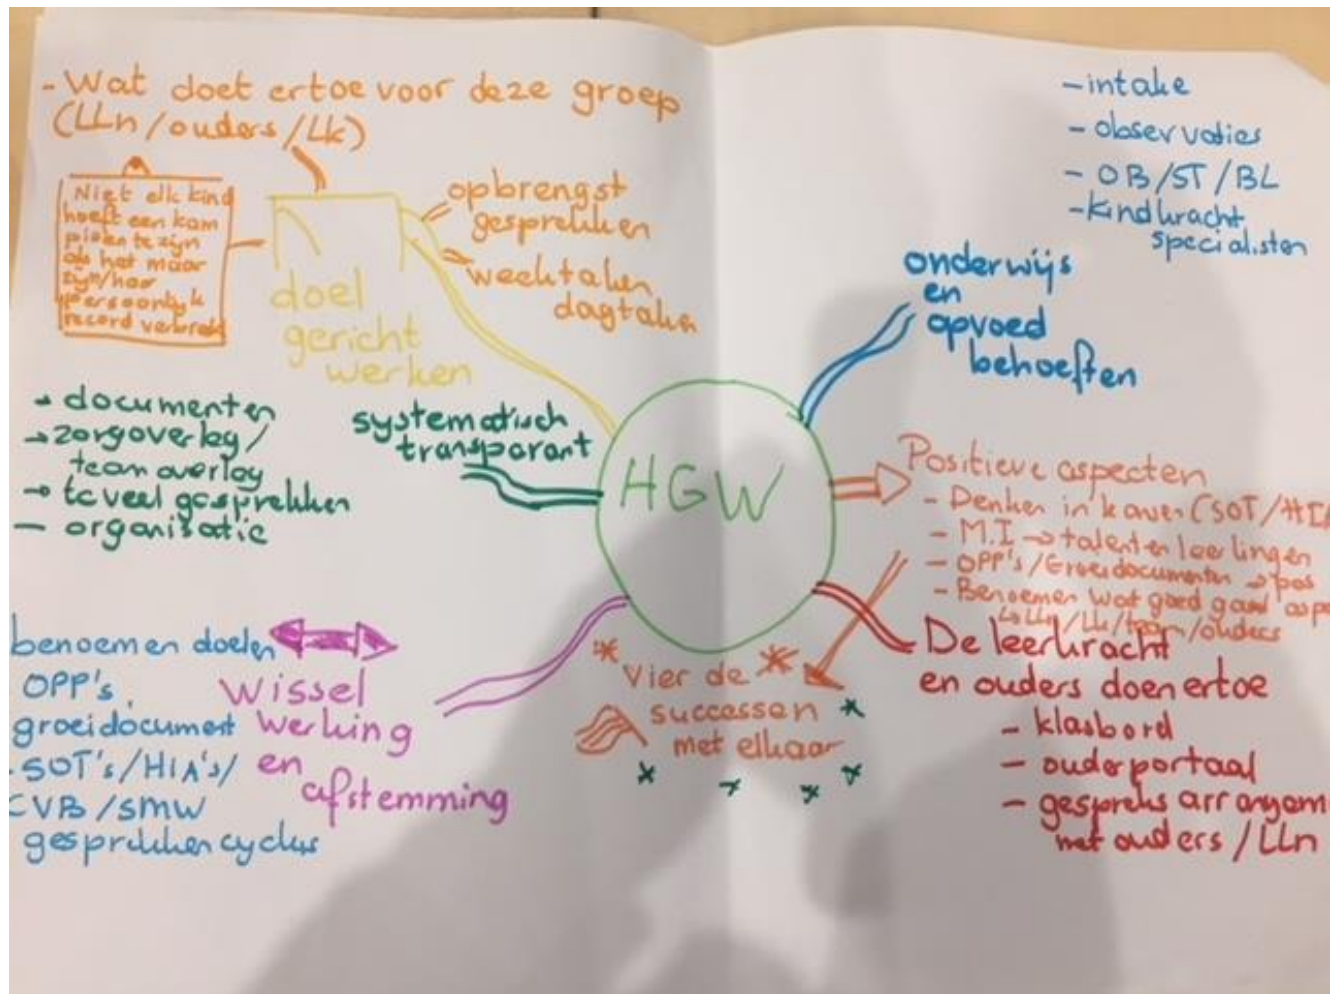 - Wat doet ertoe voor deze groep
(LLn/ouders/Lk)
Niet elk kind
hoeft een kam
pioen te zijn
als het maar
zijn/haar
persoonlijk
record verbreekt
opbrengst
gesprekken
weektaken
dagtaken
doel
gericht
werken
- intake
- observaties
- OB/ST/BL
- Kindkracht
specialisten
onderwijs
en
opvoed
behoeften
→ documenten
→ zorgoverleg/
teamoverleg
→ te veel gesprekken
- organisatie
systematisch
transparant
HGW
Positieve aspecten
- Denken in kansen (SOT/HIA
- M.I → talenten leerlingen
- OPP's/Groeidocumenten → pos
- Benoemen wat goed gaat aspe
↳ LLn/Lk/team/ouders
De leerkracht
en ouders doen ertoe
- klasbord
- ouderportaal
- gespreks arrangem
met ouders/LLn
Vier de
successen
met elkaar
Wissel
werking
en
afstemming
benoemen doelen
OPP's
groeidocument
-SOT's/HIA's/
CVB/SMW
gesprekkencyclus